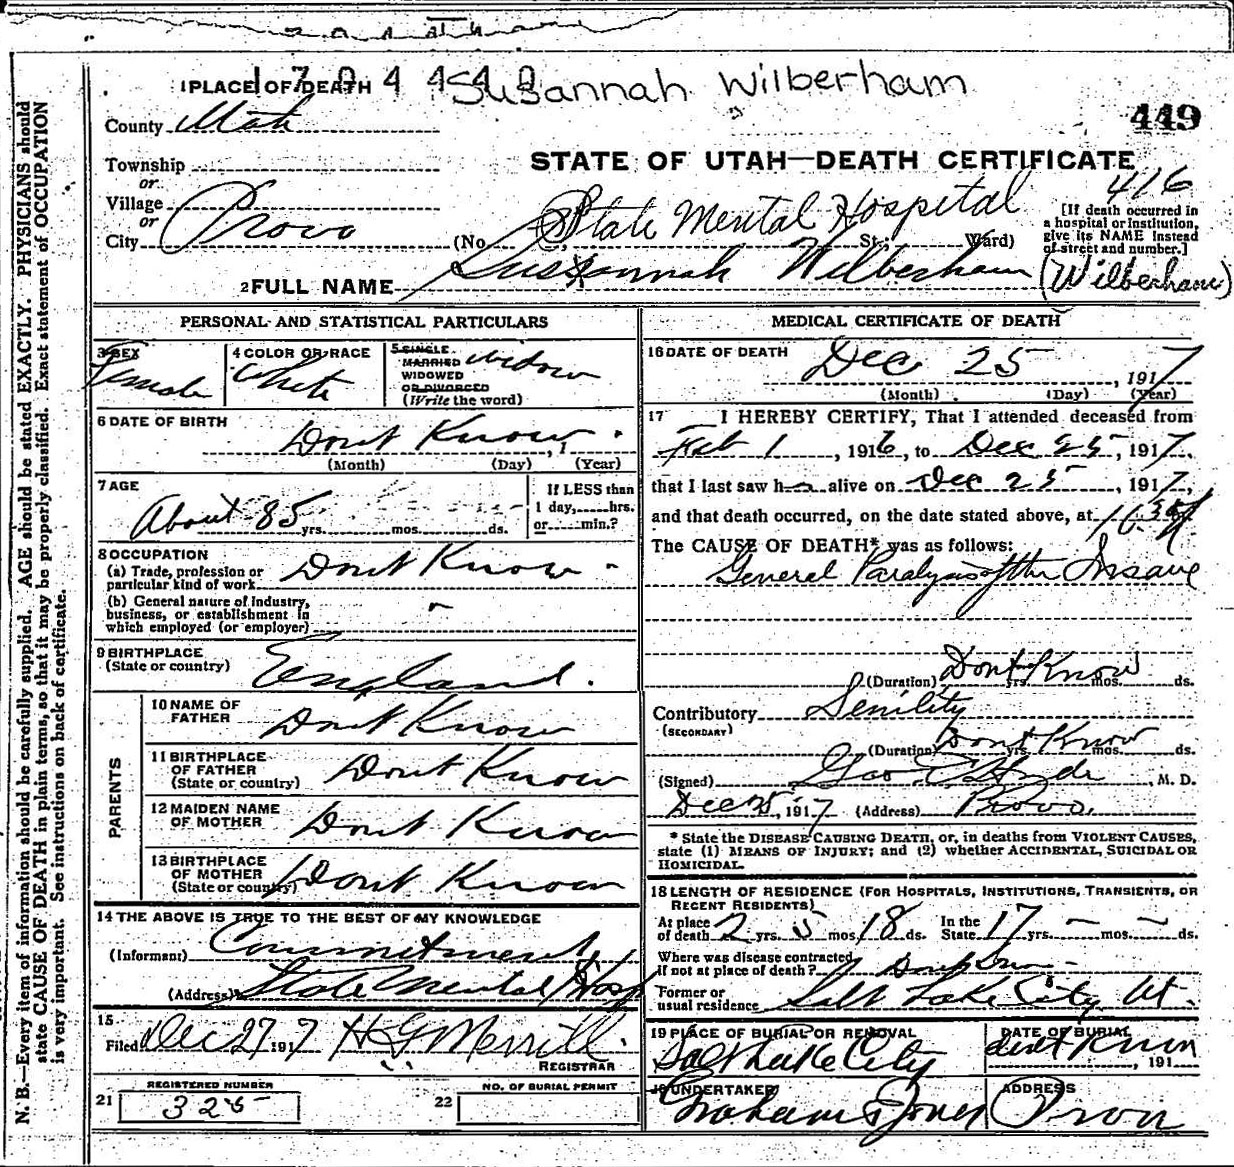 1 PLACE OF DEATH
Susannah Wilberham
449
County Utah
STATE OF UTAH—DEATH CERTIFICATE
Township
or
416
Village
or
City Provo
(No. State Mental Hospital St.; Ward)
[If death occurred in a hospital or institution, give its NAME instead of street and number.]
2 FULL NAME Susannah Wilberham (Wilberham)
PERSONAL AND STATISTICAL PARTICULARS
3 SEX
Female
4 COLOR OR RACE
White
5 SINGLE
MARRIED
WIDOWED
OR DIVORCED
(Write the word)
widow
6 DATE OF BIRTH
Dont Know, 1
(Month) (Day) (Year)
7 AGE
About 85 yrs. mos. ds.
If LESS than
1 day, hrs.
or min.?
8 OCCUPATION
(a) Trade, profession or
particular kind of work Dont Know
(b) General nature of industry,
business, or establishment in
which employed (or employer)
9 BIRTHPLACE
(State or country) England.
PARENTS
10 NAME OF
FATHER Dont Know
11 BIRTHPLACE
OF FATHER
(State or country) Dont Know
12 MAIDEN NAME
OF MOTHER Dont Know
13 BIRTHPLACE
OF MOTHER
(State or country) Dont Know
14 THE ABOVE IS TRUE TO THE BEST OF MY KNOWLEDGE
(Informant) Commitment
(Address) State Mental Hosp
15
Filed Dec 27 1917 H G Merrill.
REGISTRAR
21
REGISTERED NUMBER
325
22
NO. OF BURIAL PERMIT
MEDICAL CERTIFICATE OF DEATH
16 DATE OF DEATH
Dec 25, 1917
(Month) (Day) (Year)
17 I HEREBY CERTIFY, That I attended deceased from
Feb 1, 1916, to Dec 25, 1917,
that I last saw her alive on Dec 25, 1917,
and that death occurred, on the date stated above, at
The CAUSE OF DEATH* was as follows:
General Paralysis of the Insane
(Duration) Dont Know yrs. mos. ds.
Contributory Senility
(SECONDARY)
(Duration) Dont Know yrs. mos. ds.
(Signed) Geo E Hyde, M. D.
Dec 25, 1917 (Address) Provo.
* State the DISEASE CAUSING DEATH, or, in deaths from VIOLENT CAUSES,
state (1) MEANS OF INJURY; and (2) whether ACCIDENTAL, SUICIDAL OR
HOMICIDAL.
18 LENGTH OF RESIDENCE (FOR HOSPITALS, INSTITUTIONS, TRANSIENTS, OR
RECENT RESIDENTS)
At place
of death 2 yrs. 5 mos. 18 ds.
In the
State 17 yrs. mos. ds.
Where was disease contracted
if not at place of death? Dont Know
Former or
usual residence Salt Lake City Ut.
19 PLACE OF BURIAL OR REMOVAL
Salt Lake City
DATE OF BURIAL
dont Know
191
UNDERTAKER
Graham & Jones
ADDRESS
Provo
N. B.—Every item of information should be carefully supplied. AGE should be stated EXACTLY. PHYSICIANS should
state CAUSE OF DEATH in plain terms, so that it may be properly classified. Exact statement of OCCUPATION
is very important. See instructions on back of certificate.